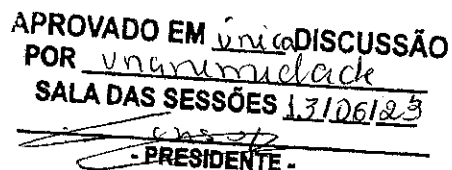 APROVADO EM única DISCUSSÃO
POR unanimidade
SALA DAS SESSÕES 13/06/23
- PRESIDENTE -